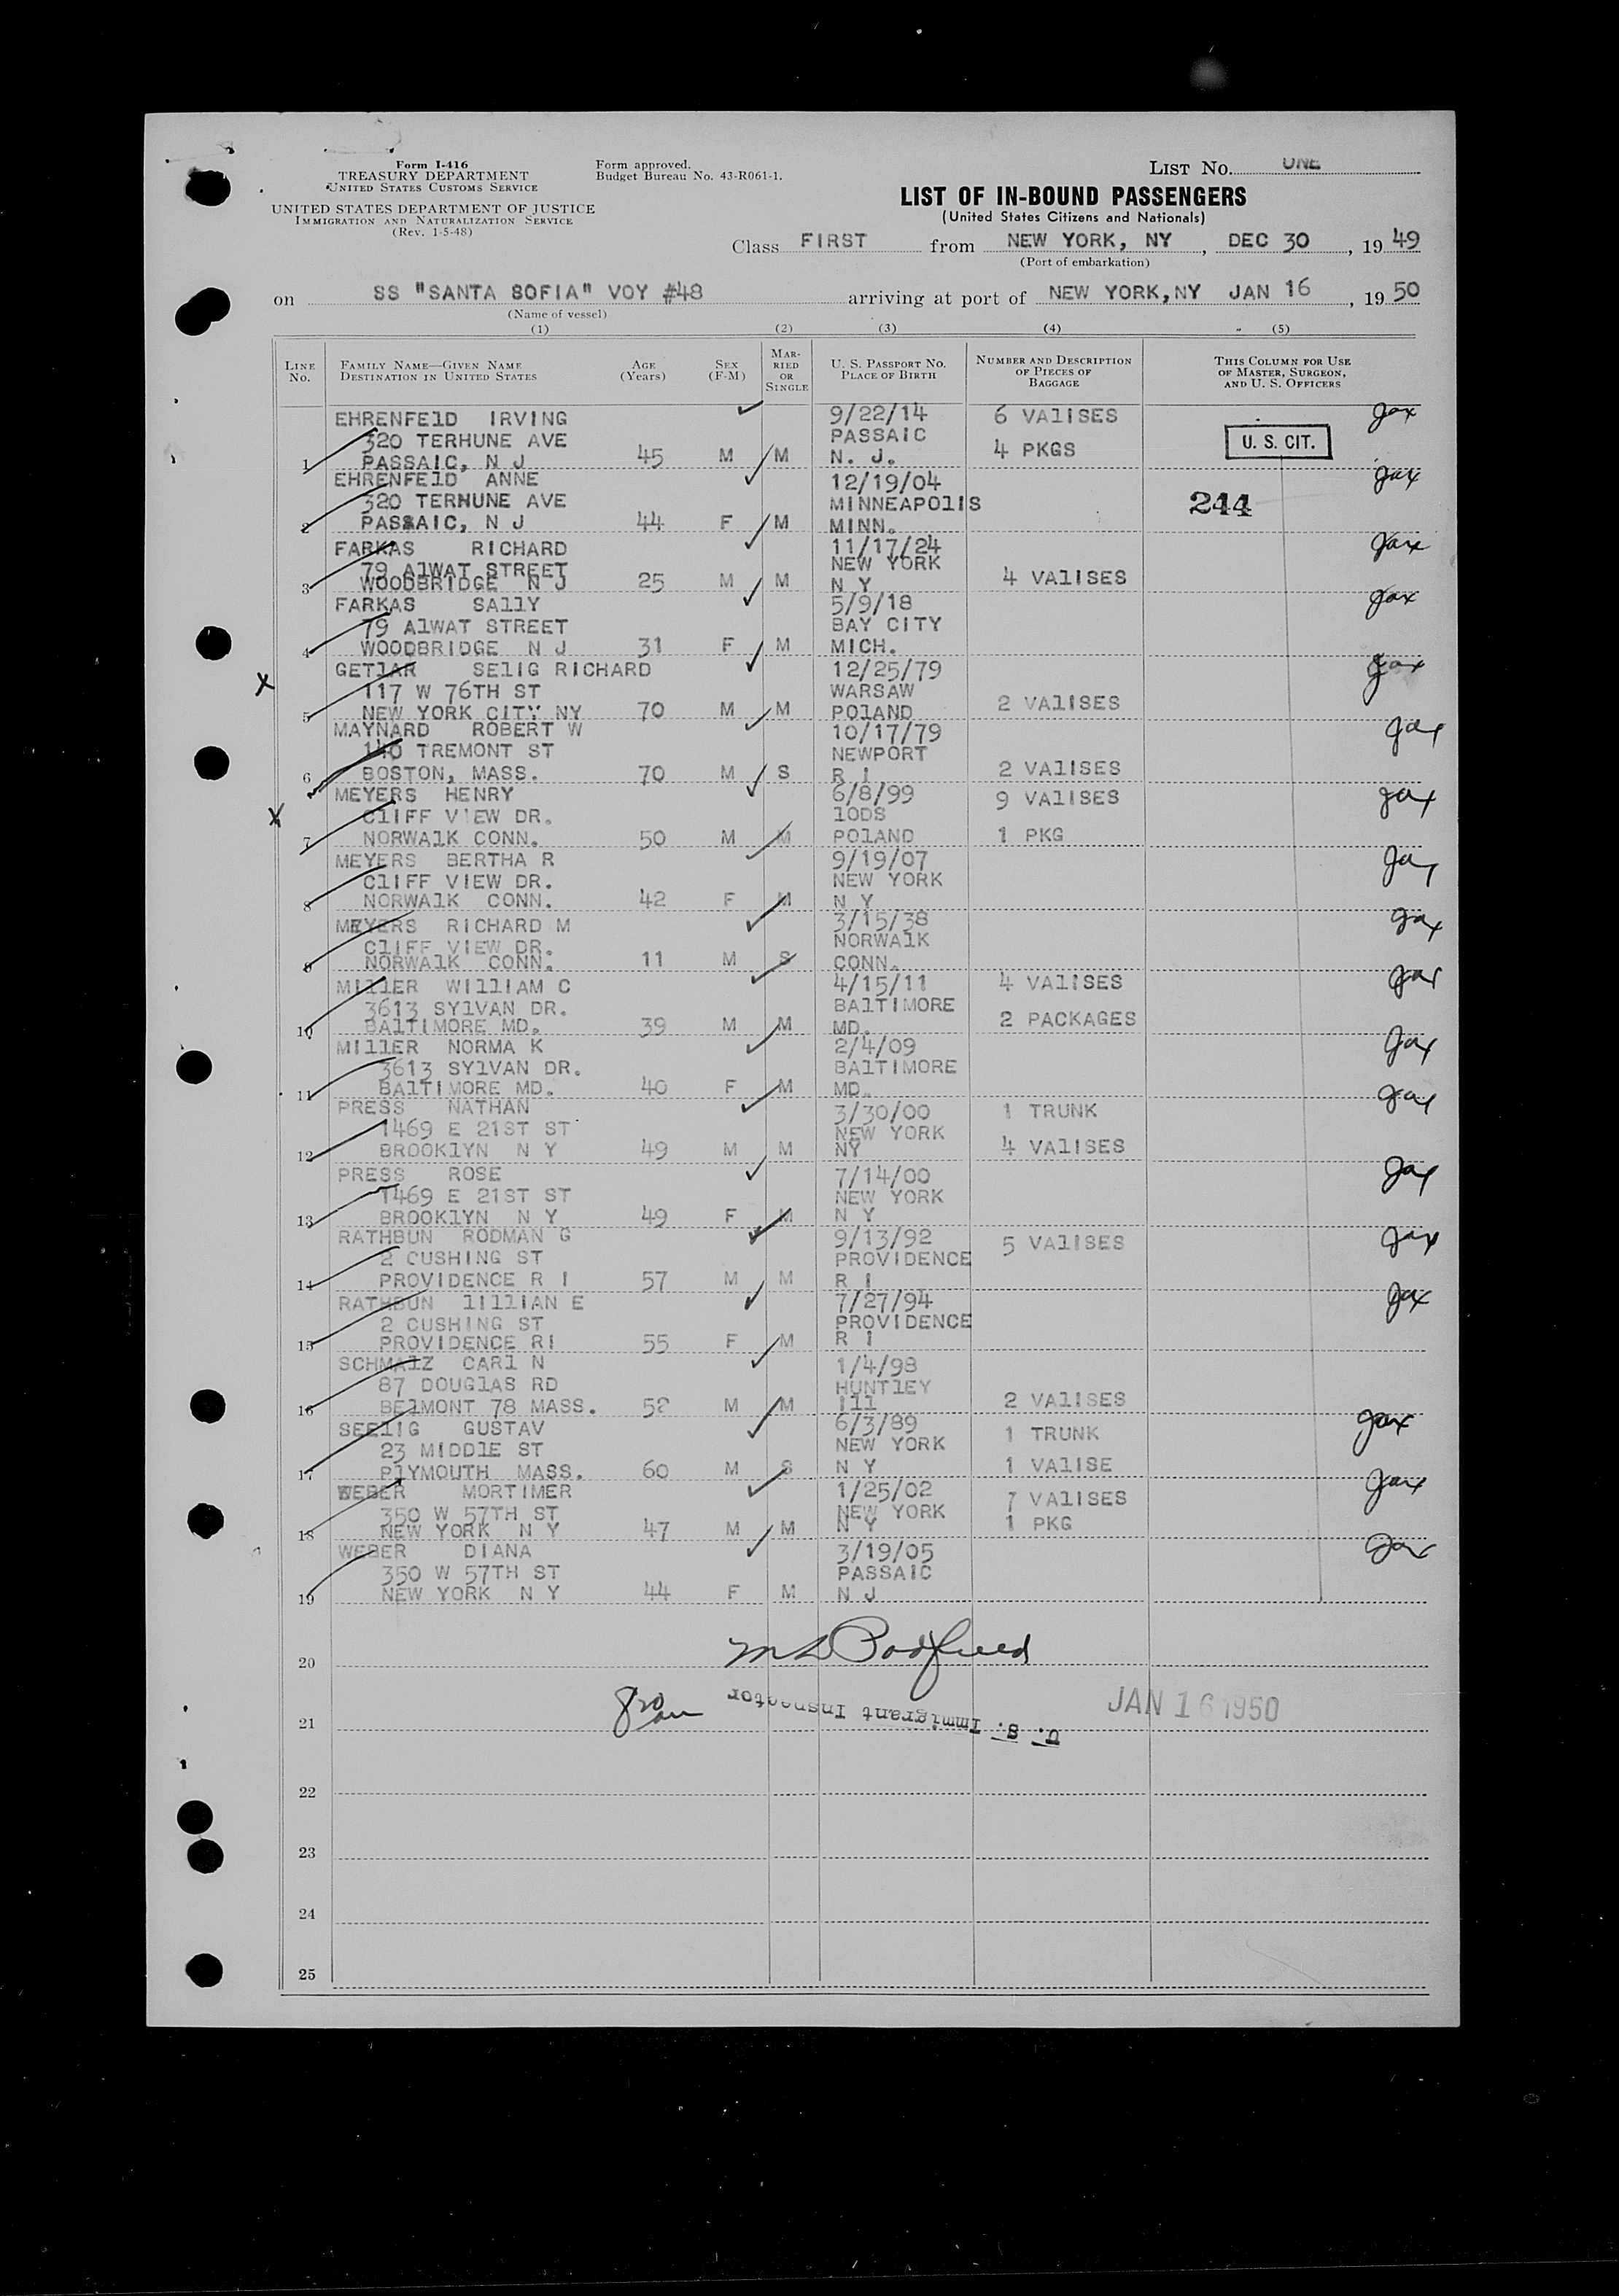 Form I-416
TREASURY DEPARTMENT
UNITED STATES CUSTOMS SERVICE
UNITED STATES DEPARTMENT OF JUSTICE
IMMIGRATION AND NATURALIZATION SERVICE
(Rev. 1-5-48)
Form approved.
Budget Bureau No. 43-R061-1.
LIST No. ONE
LIST OF IN-BOUND PASSENGERS
(United States Citizens and Nationals)
Class FIRST from NEW YORK, NY, DEC 30, 1949
(Port of embarkation)
on SS "SANTA SOFIA" VOY #48 arriving at port of NEW YORK, NY JAN 16, 1950
(Name of vessel)
(1) (2) (3) (4) (5)
LINE No. FAMILY NAME—GIVEN NAME DESTINATION IN UNITED STATES AGE (Years) SEX (F-M) MARRIED OR SINGLE U. S. PASSPORT No. PLACE OF BIRTH NUMBER AND DESCRIPTION OF PIECES OF BAGGAGE THIS COLUMN FOR USE OF MASTER, SURGEON, AND U. S. OFFICERS
EHRENFElD IRVING 9/22/14 6 VAlISES
320 TERHUNE AVE PASSAIC U. S. CIT.
1 PASSAIC, N J 45 M M N. J. 4 PKGS
EHRENFElD ANNE 12/19/04
320 TERHUNE AVE MINNEAPOlIS 244
2 PASSAIC, N J 44 F M MINN.
FARKAS RICHARD 11/17/24
79 AlWAT STREET NEW YORK
3 WOODBRIDGE N J 25 M M N Y 4 VAlISES
FARKAS SAllY 5/9/18
79 AlWAT STREET BAY CITY
4 WOODBRIDGE N J 31 F M MICH.
GETlAR SElIG RICHARD 12/25/79
X 117 W 76TH ST WARSAW
5 NEW YORK CITY NY 70 M M POlAND 2 VAlISES
MAYNARD ROBERT W 10/17/79
140 TREMONT ST NEWPORT
6 BOSTON, MASS. 70 M S R I 2 VAlISES
MEYERS HENRY 6/8/99 9 VAlISES
X ClIFF VIEW DR. lODS
7 NORWAlK CONN. 50 M M POlAND 1 PKG
MEYERS BERTHA R 9/19/07
ClIFF VIEW DR. NEW YORK
8 NORWAlK CONN. 42 F M N Y
MEYERS RICHARD M 3/15/38
ClIFF VIEW DR. NORWAlK
9 NORWAlK CONN. 11 M S CONN.
MIllER WIllIAM C 4/15/11 4 VAlISES
3613 SYlVAN DR. BAlTIMORE
10 BAlTIMORE MD. 39 M M MD. 2 PACKAGES
MIllER NORMA K 2/4/09
3613 SYlVAN DR. BAlTIMORE
11 BAlTIMORE MD. 40 F M MD.
PRESS NATHAN 3/30/00 1 TRUNK
1469 E 21ST ST NEW YORK
12 BROOKlYN N Y 49 M M NY 4 VAlISES
PRESS ROSE 7/14/00
1469 E 21ST ST NEW YORK
13 BROOKlYN N Y 49 F M N Y
RATHBUN RODMAN G 9/13/92 5 VAlISES
2 CUSHING ST PROVIDENCE
14 PROVIDENCE R I 57 M M R I
RATHBUN lIllIAN E 7/27/94
2 CUSHING ST PROVIDENCE
15 PROVIDENCE RI 55 F M R I
SCHMAlZ CARl N 1/4/98
87 DOUGlAS RD HUNTlEY
16 BElMONT 78 MASS. 52 M M Ill 2 VAlISES
SEElIG GUSTAV 6/3/89 1 TRUNK
23 MIDDlE ST NEW YORK
17 PlYMOUTH MASS. 60 M S N Y 1 VAlISE
WEBER MORTIMER 1/25/02 7 VAlISES
350 W 57TH ST NEW YORK
18 NEW YORK N Y 47 M M N Y 1 PKG
WEBER DIANA 3/19/05
350 W 57TH ST PASSAIC
19 NEW YORK N Y 44 F M N J
20
U. S. Immigrant Inspector JAN 16 1950
21
22
23
24
25